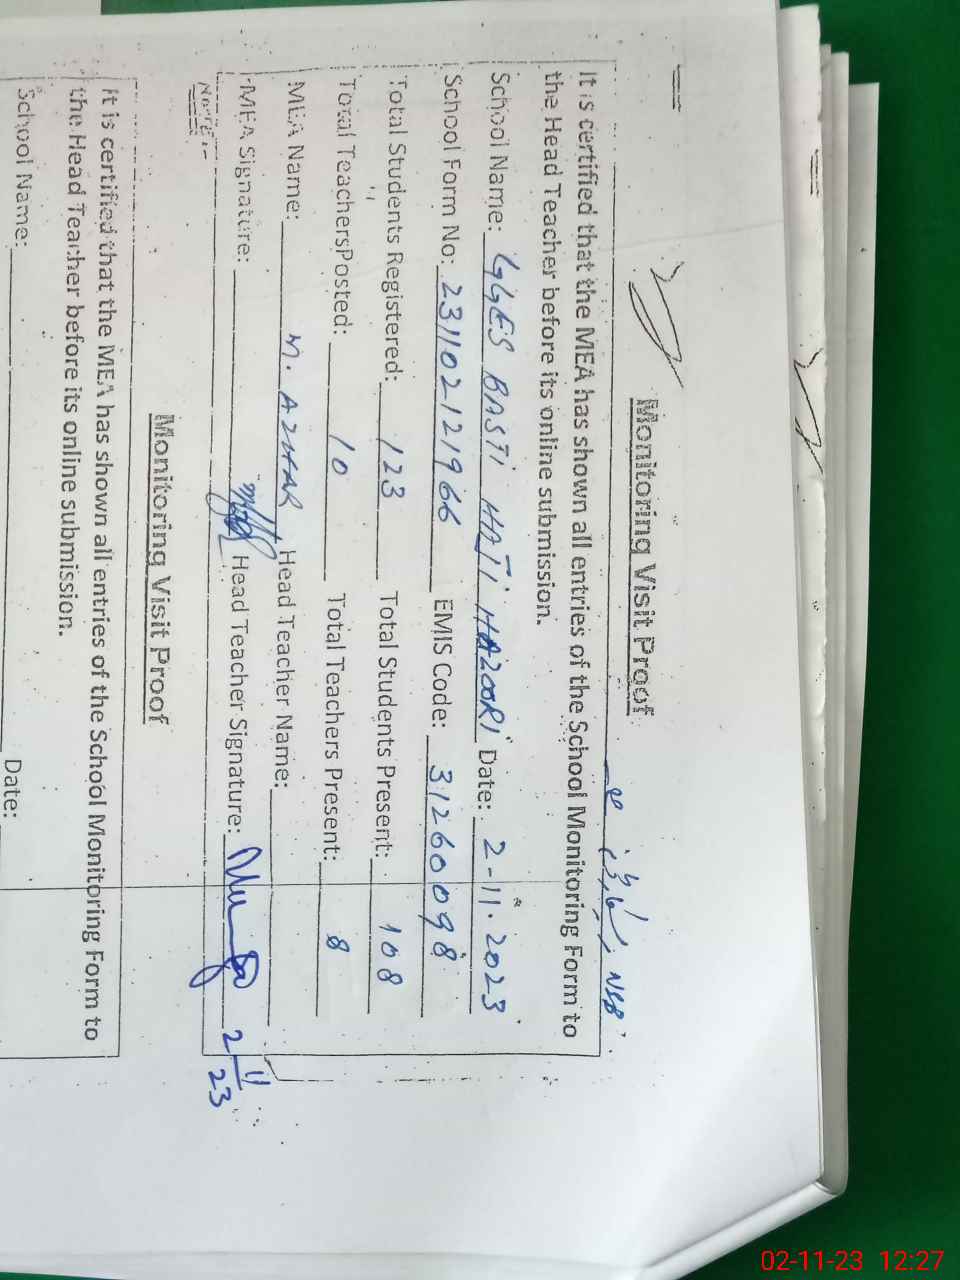 Monitoring Visit Proof
It is certified that the MEA has shown all entries of the School Monitoring Form to
the Head Teacher before its online submission.
School Name: GGES BASTI HAJI HAZOORI Date: 2-11.2023
School Form No: 231102121966 EMIS Code: 31260098
Total Students Registered: 123 Total Students Present: 108
Total TeachersPosted: 10 Total Teachers Present: 8
MEA Name: M. AZHAR Head Teacher Name:
MEA Signature: Head Teacher Signature: 2/11/23
Monitoring Visit Proof
It is certified that the MEA has shown all entries of the School Monitoring Form to
the Head Teacher before its online submission.
School Name: Date:
02-11-23 12:27